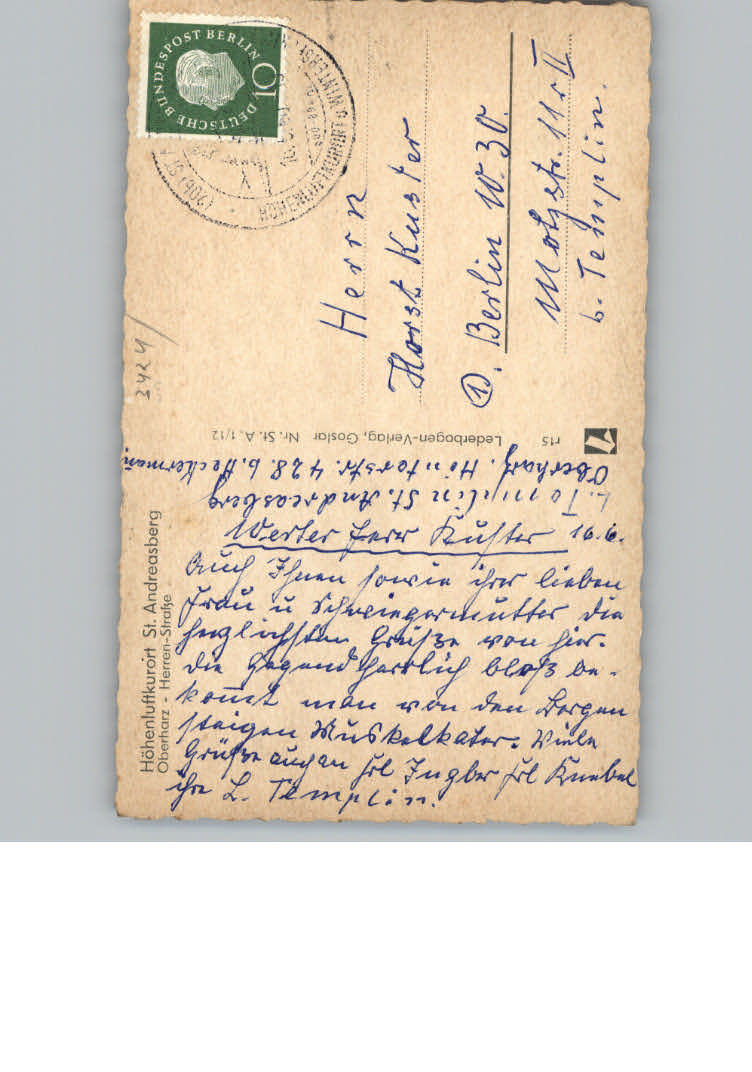 Höhenluftkurort St. Andreasberg
Oberharz - Herren-Straße
L. Templin St. Andreasberg
Oberharz. Hinterstr. 428. b. Heckermann
Werter Herr Kuster 16.6.
Auch Ihnen sowie ihrer lieben
Frau u Schwiegermutter die
herzlichsten Grüße von hier.
Die Gegend herrlich bloß be-
kommt man von den Bergen
steigen Muskelkater. Viele
Grüße auch an Frl Ingber Frl Knebel
ihre L. Templin.
Lederbogen-Verlag, Goslar Nr. St. A. 1/12
r15
3424
DEUTSCHE BUNDESPOST BERLIN
10
HÖHENLUFTKURORT
Herrn
Horst Kuster
1). Berlin W. 30.
Motzstr. 11 r II
b. Templin.